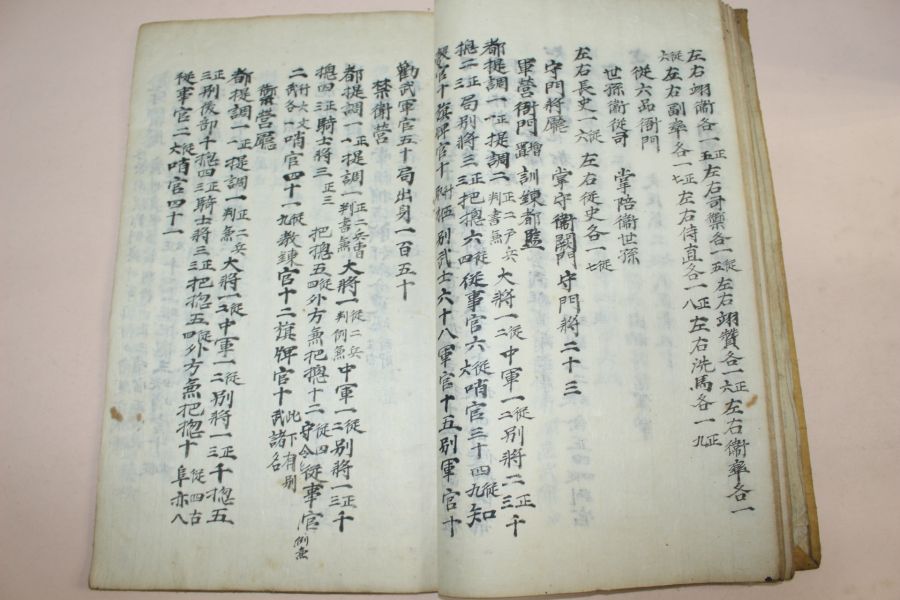 左右翊衛各一正五左右司禦各一從五左右翊贊各一正六左右衛率各一
從六左右副率各一正七左右侍直各一正八左右洗馬各一正九
從六品衙門
世孫衛從司 掌陪衛世孫
左右長史一從六 左右從史各一從七
守門將廳 掌守衛闕門 守門將二十三
軍營衙門增置 訓鍊都監
都提調一正一提調二正二戶兵判書兼大將一從二中軍一從二別將二正三千
摠二正三局別將三正三把摠六從四從事官六從六哨官三十四從九知
彀官十旗牌官十 別武士六十八軍官十五別軍官十
勸武軍官五十局出身一百五十
禁衛營
都提調一正一提調一正二兵曹判書兼大將一從二兵判例兼中軍一從二別將一正三千
摠四正三騎士將三正三 把摠五從四外方兼把摠十二從四守令 從事官例兼
二文武各一哨官四十一從九教鍊官十二旗牌官十此下有別武諸名
御營廳
都提調一正一提調一正二兵判兼大將一從二中軍一從二別將一正三千摠五
正三別後部千摠四正三騎士將三正三把摠五從四外方兼把摠十從四
從事官二從六哨官四十一